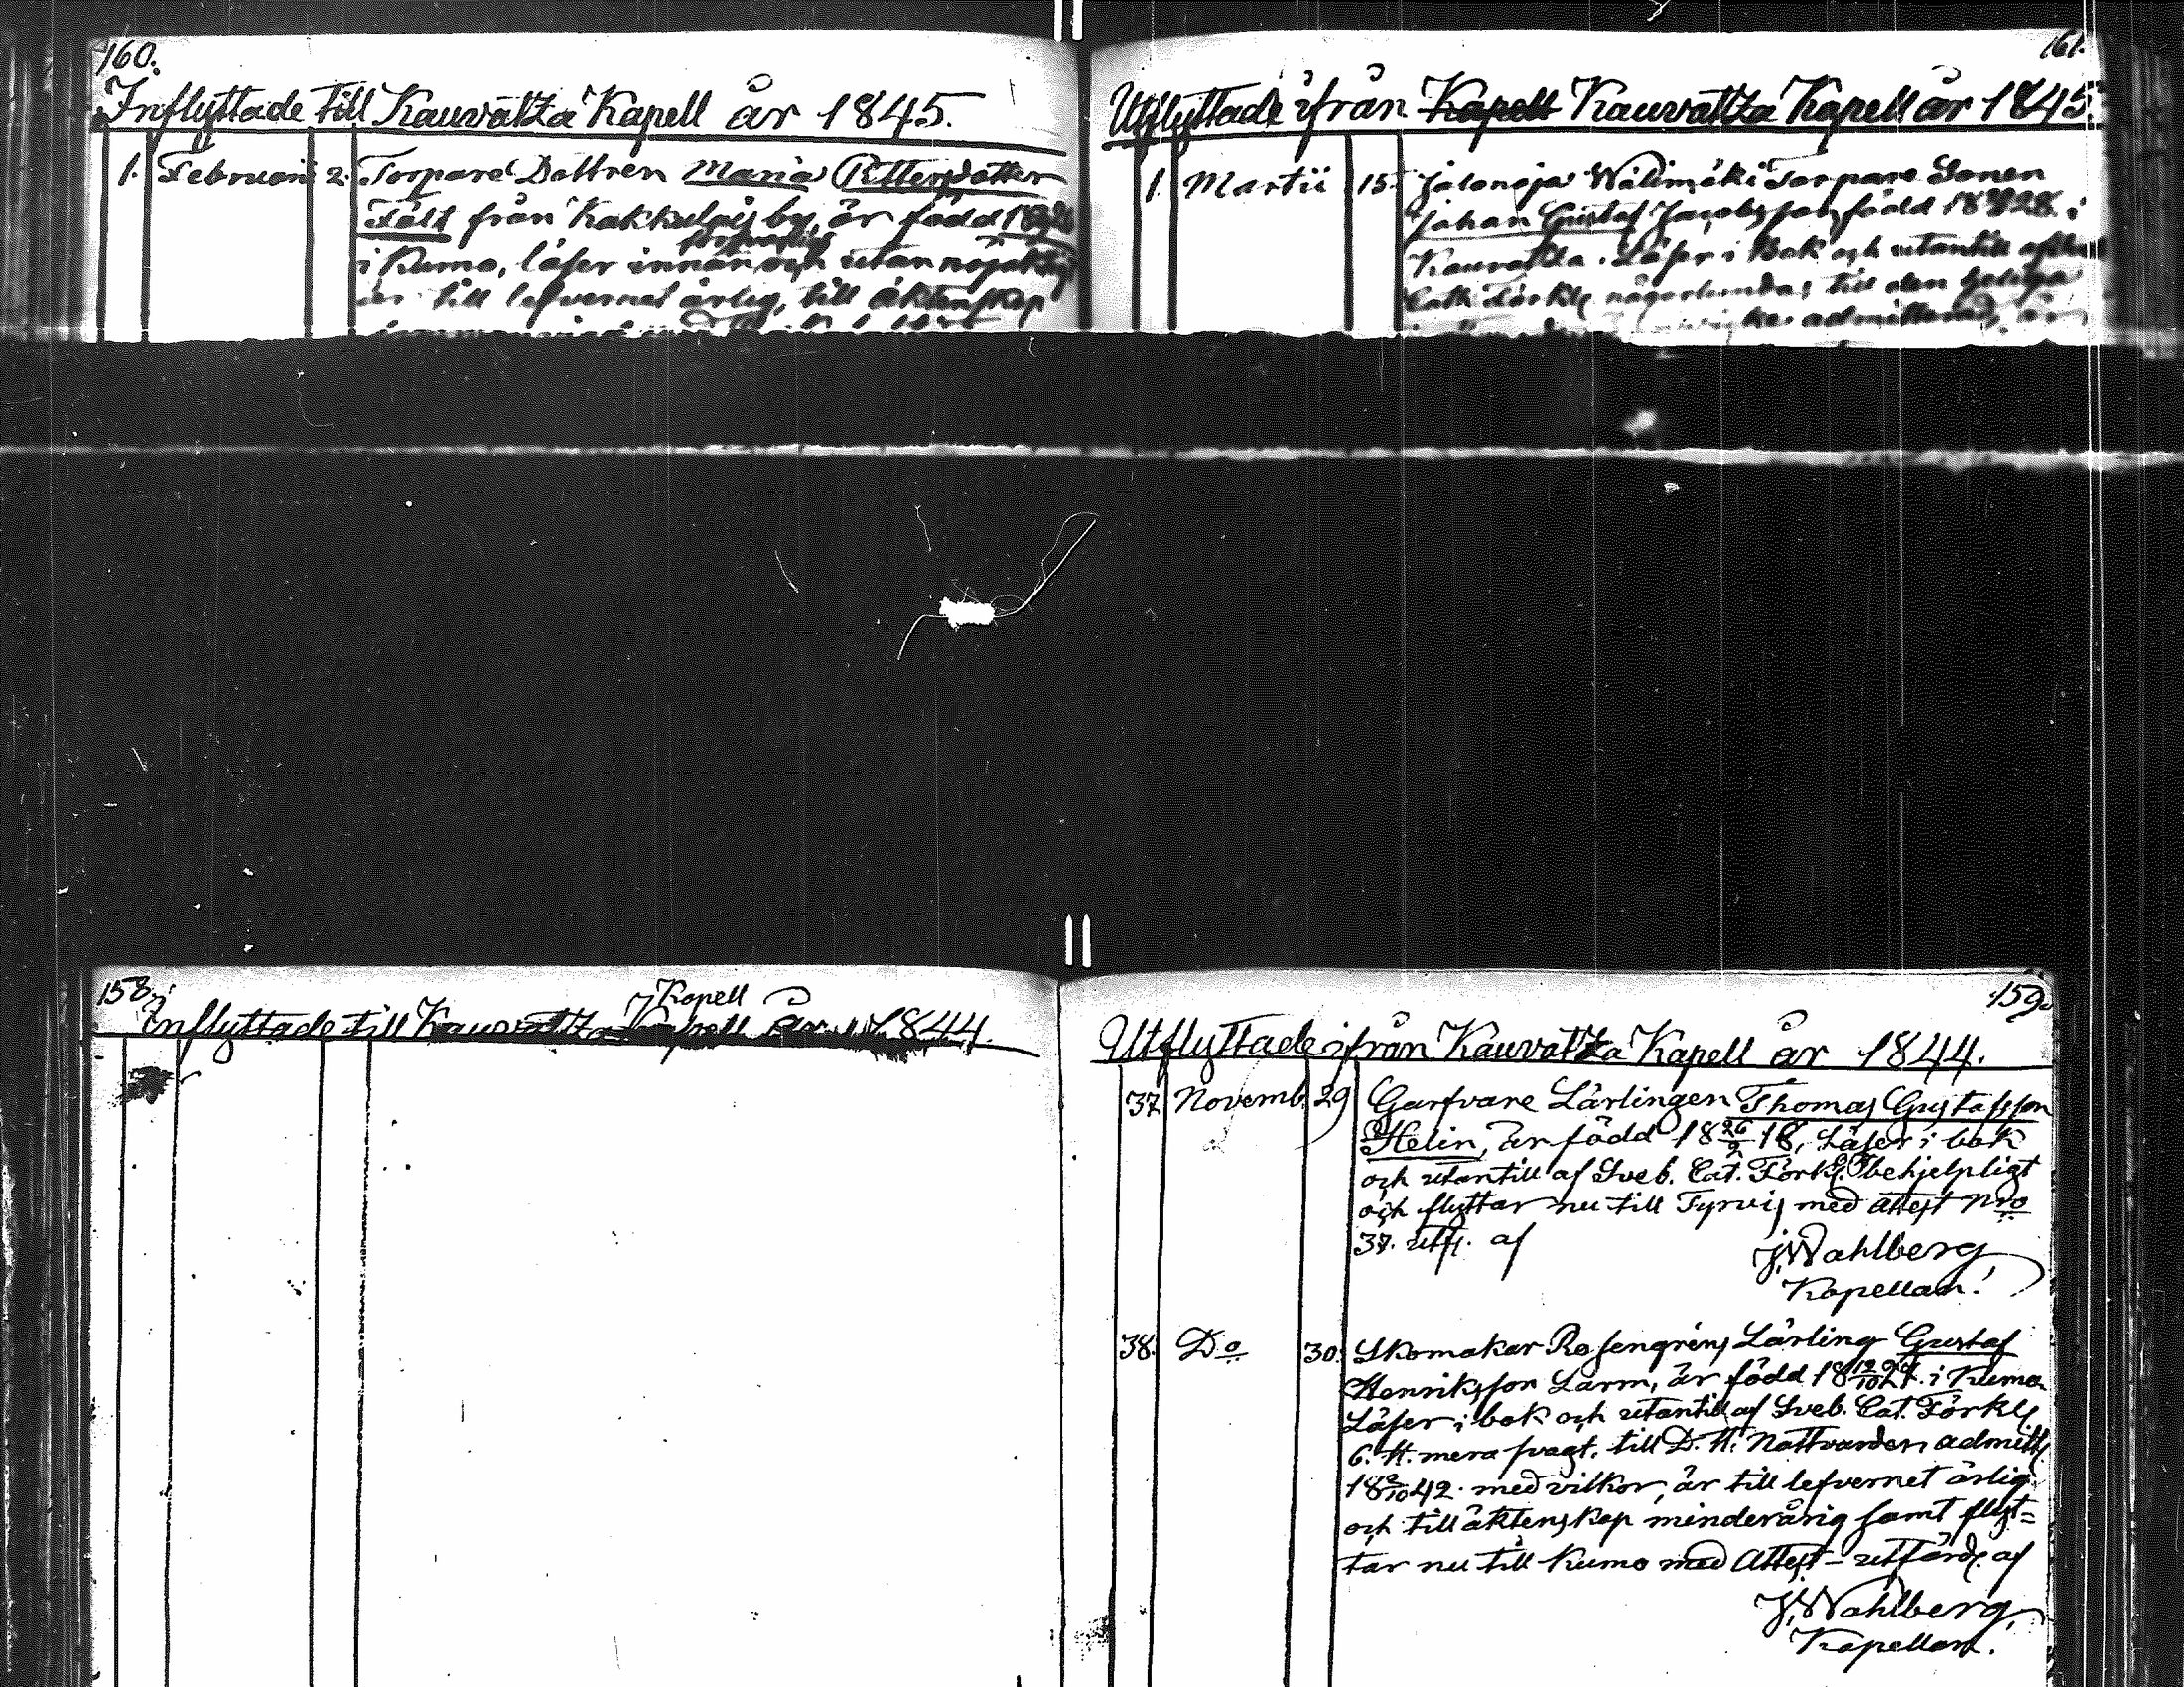 160.
Inflyttade till Kauvatza Kapell år 1845.
1. Februari 2. Torpare Dottren Maria Pettersdotter
Fält från Kakkulais by, är född
i Kumo, läser innan och utan
försvarligt
är till lefvernet ärlig, till äktenskap
161.
Utflyttade ifrån Kapell Kauvatza Kapell år 1845.
1. Martii 15. Jalonoja Wälimäki Torpare Sonen
Johan Gustaf Jacobsson, född 28. i
Kauvatza. Läser i Bok och utantill af
Cath. Förkl. någorlunda; till den
admitterad, är
158.
Kapell
Inflyttade till Kauvatza Kapell år 1844.
159.
Utflyttade ifrån Kauvatza Kapell år 1844.
37. Novemb. 29 Garfvare Lärlingen Thomas Gustafsson
Helin, är född 18 26/2 18, Läser i bok
och utantill af Sveb. Cat. Förkl. behjelpligt
och flyttar nu till Tyrvis med attest Nro
37. utf. af
J. Wahlberg
Kapellan.
38. Do 30. Skomakar Rosengrens Lärling Gustaf
Henriksson Larm, är född i Kumo
Läser i bok och utantill af Sveb. Cat. Förkl.
C. H. mera svagt, till D. H. Nattvarden admitt.
18 2/10 42. med vilkor, är till lefvernet ärlig
och till äktenskap minderårig samt flyt=
tar nu till Kumo med Attest – utfärd. af
J. Wahlberg,
Kapellan.